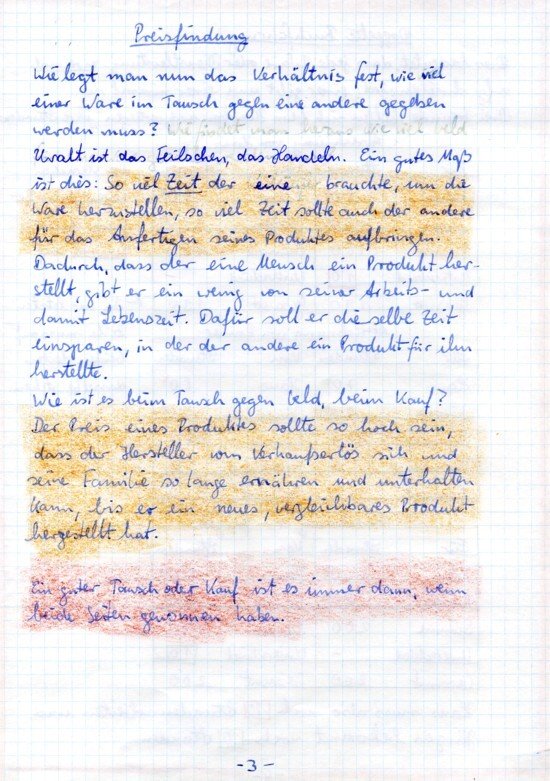 Preisfindung
Wie legt man nun das Verhältnis fest, wie viel
einer Ware im Tausch gegen eine andere gegeben
werden muss? Wie findet man heraus wie viel Geld
Uralt ist das Feilschen, das Handeln. Ein gutes Maß
ist dies: So viel Zeit der eine brauchte, um die
Ware herzustellen, so viel Zeit sollte auch der andere
für das Anfertigen seines Produktes aufbringen.
Dadurch, dass der eine Mensch ein Produkt her-
stellt, gibt er ein wenig von seiner Arbeits- und
damit Lebenszeit. Dafür soll er dieselbe Zeit
einsparen, in der der andere ein Produkt für ihn
herstellte.
Wie ist es beim Tausch gegen Geld, beim Kauf?
Der Preis eines Produktes sollte so hoch sein,
dass der Hersteller vom Verkaufserlös sich und
seine Familie so lange ernähren und unterhalten
kann, bis er ein neues, vergleichbares Produkt
hergestellt hat.
Ein guter Tausch oder Kauf ist es immer dann, wenn
beide Seiten gewonnen haben.
- 3 -